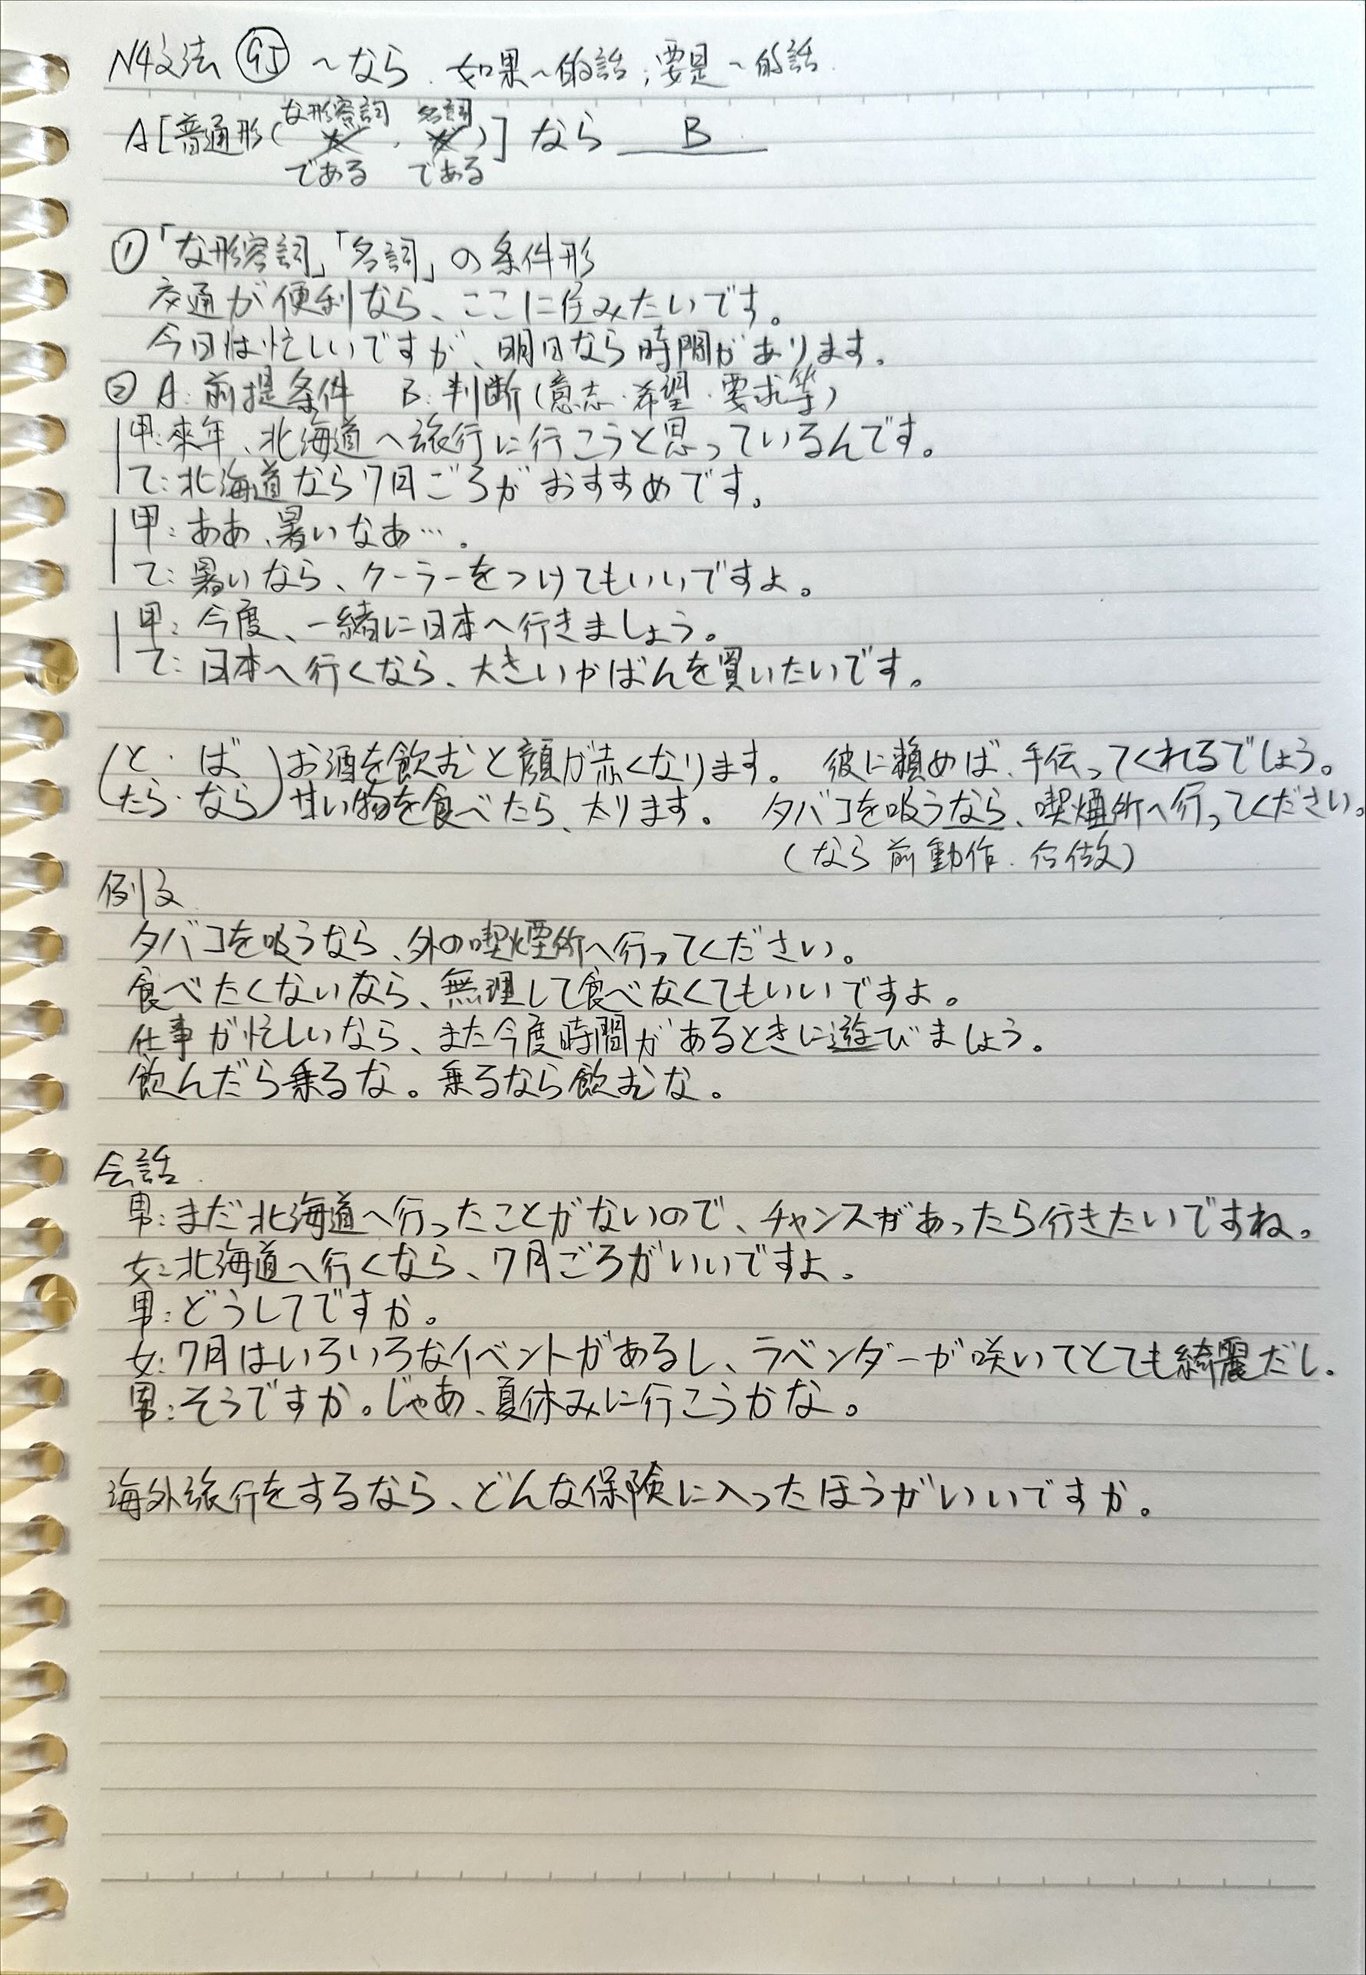 N4文法 95 ～なら. 如果～的話；要是～的話.
な形容詞 名詞
A[普通形(だ, だ)] なら B
である である
①「な形容詞」「名詞」の条件形
交通が便利なら、ここに住みたいです。
今日は忙しいですが、明日なら時間があります。
② A: 前提条件 B: 判断(意志・希望・要求等)
甲: 来年、北海道へ旅行に行こうと思っているんです。
乙: 北海道なら7月ごろがおすすめです。
甲: ああ、暑いなあ….
乙: 暑いなら、クーラーをつけてもいいですよ。
甲: 今度、一緒に日本へ行きましょう。
乙: 日本へ行くなら、大きいかばんを買いたいです。
(と・ば お酒を飲むと顔が赤くなります。 彼に頼めば、手伝ってくれるでしょう。
たら・なら) 甘い物を食べたら、太ります。 タバコを吸うなら、喫煙所へ行ってください。
(なら 前動作. 合做)
例文
タバコを吸うなら、外の喫煙所へ行ってください。
食べたくないなら、無理して食べなくてもいいですよ。
仕事が忙しいなら、また今度時間があるときに遊びましょう。
飲んだら乗るな。乗るなら飲むな。
会話.
男: まだ北海道へ行ったことがないので、チャンスがあったら行きたいですね。
女: 北海道へ行くなら、7月ごろがいいですよ。
男: どうしてですか。
女: 7月はいろいろなイベントがあるし、ラベンダーが咲いてとても綺麗だし.
男: そうですか。じゃあ、夏休みに行こうかな。
海外旅行をするなら、どんな保険に入ったほうがいいですか。